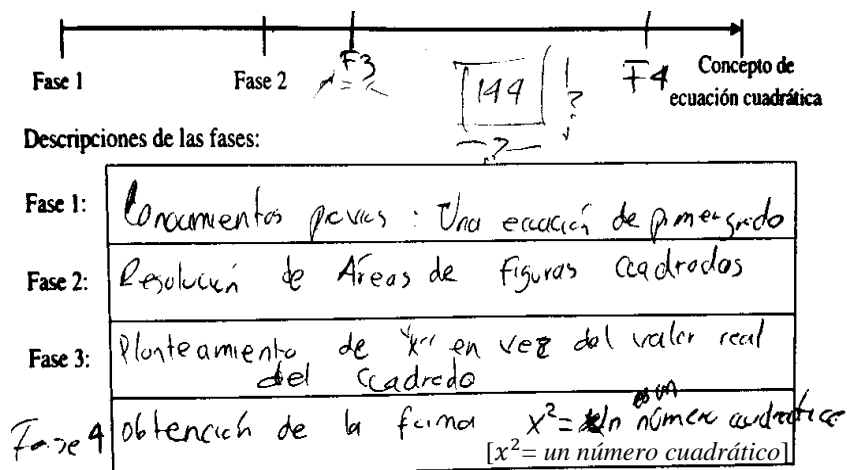 Fase 1 Fase 2 F3 144 ? F4 Concepto de
ecuación cuadrática
?
Descripciones de las fases:
Fase 1: Conocimientos previos : Una ecuación de primer grado
Fase 2: Resolución de Áreas de Figuras Cuadrados
Fase 3: Planteamiento de "x" en vez del valor real
del Cuadrado
Fase 4 obtención de la forma x² = un número cuadrático
[x²= un número cuadrático]